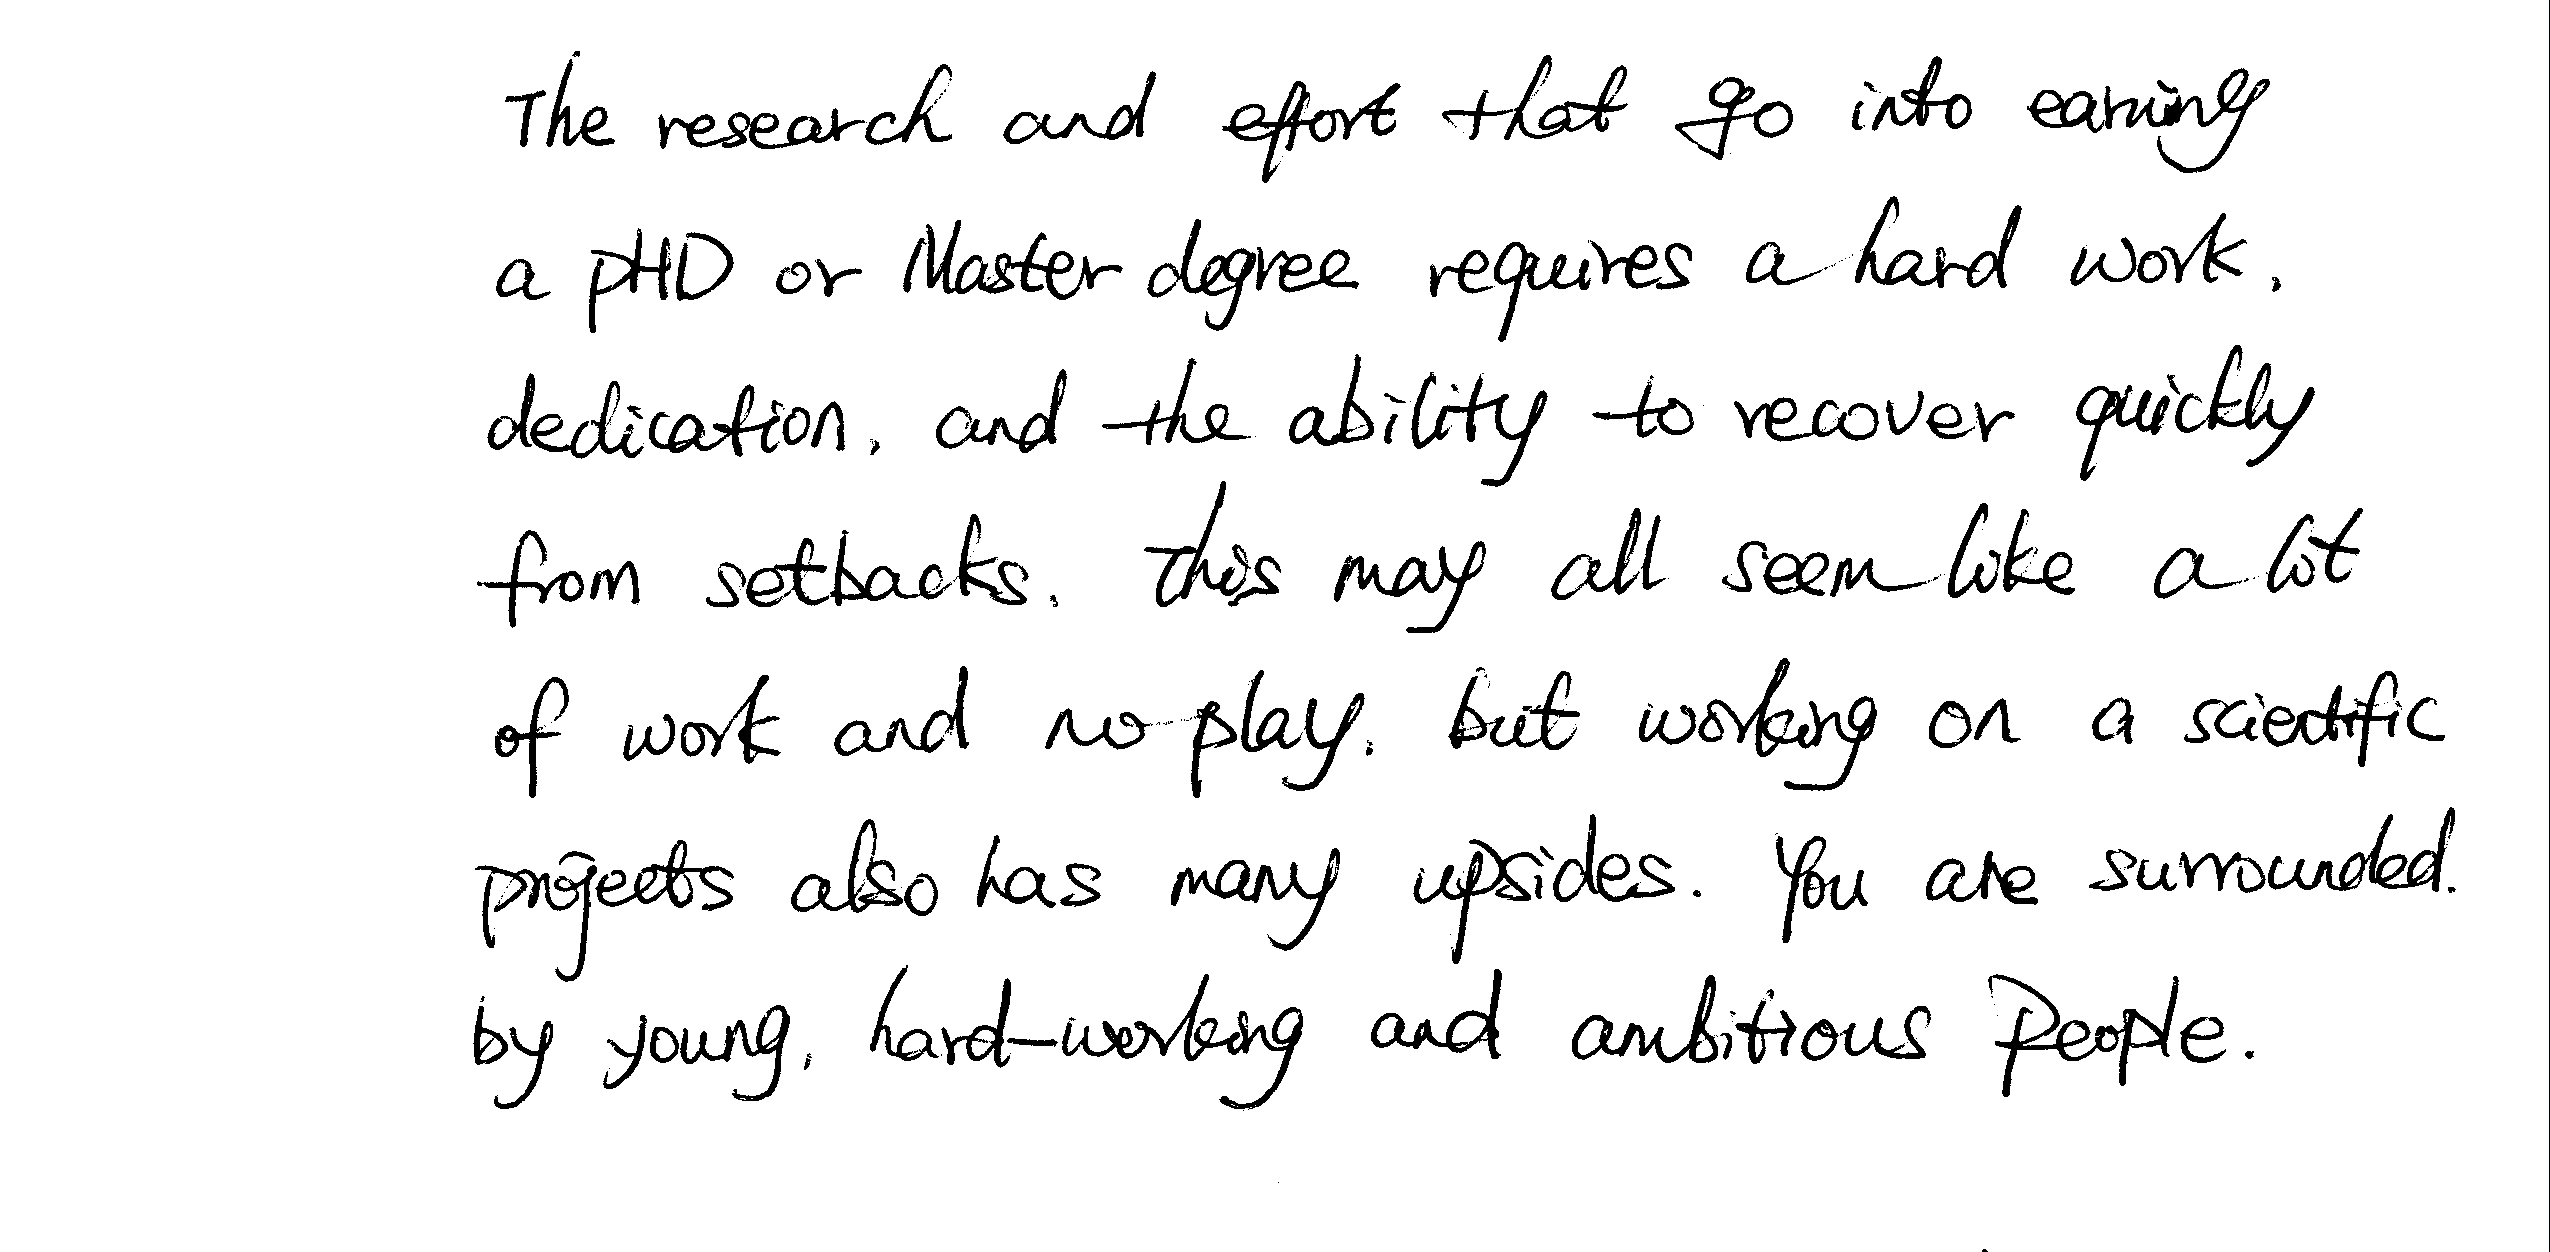 The research and effort that go into earning
a pHD or Master degree requires a hard work,
dedication, and the ability to recover quickly
from setbacks. This may all seem like a lot
of work and no play, but working on a scientific
projects also has many upsides. You are surrounded.
by young, hard-working and ambitious People.